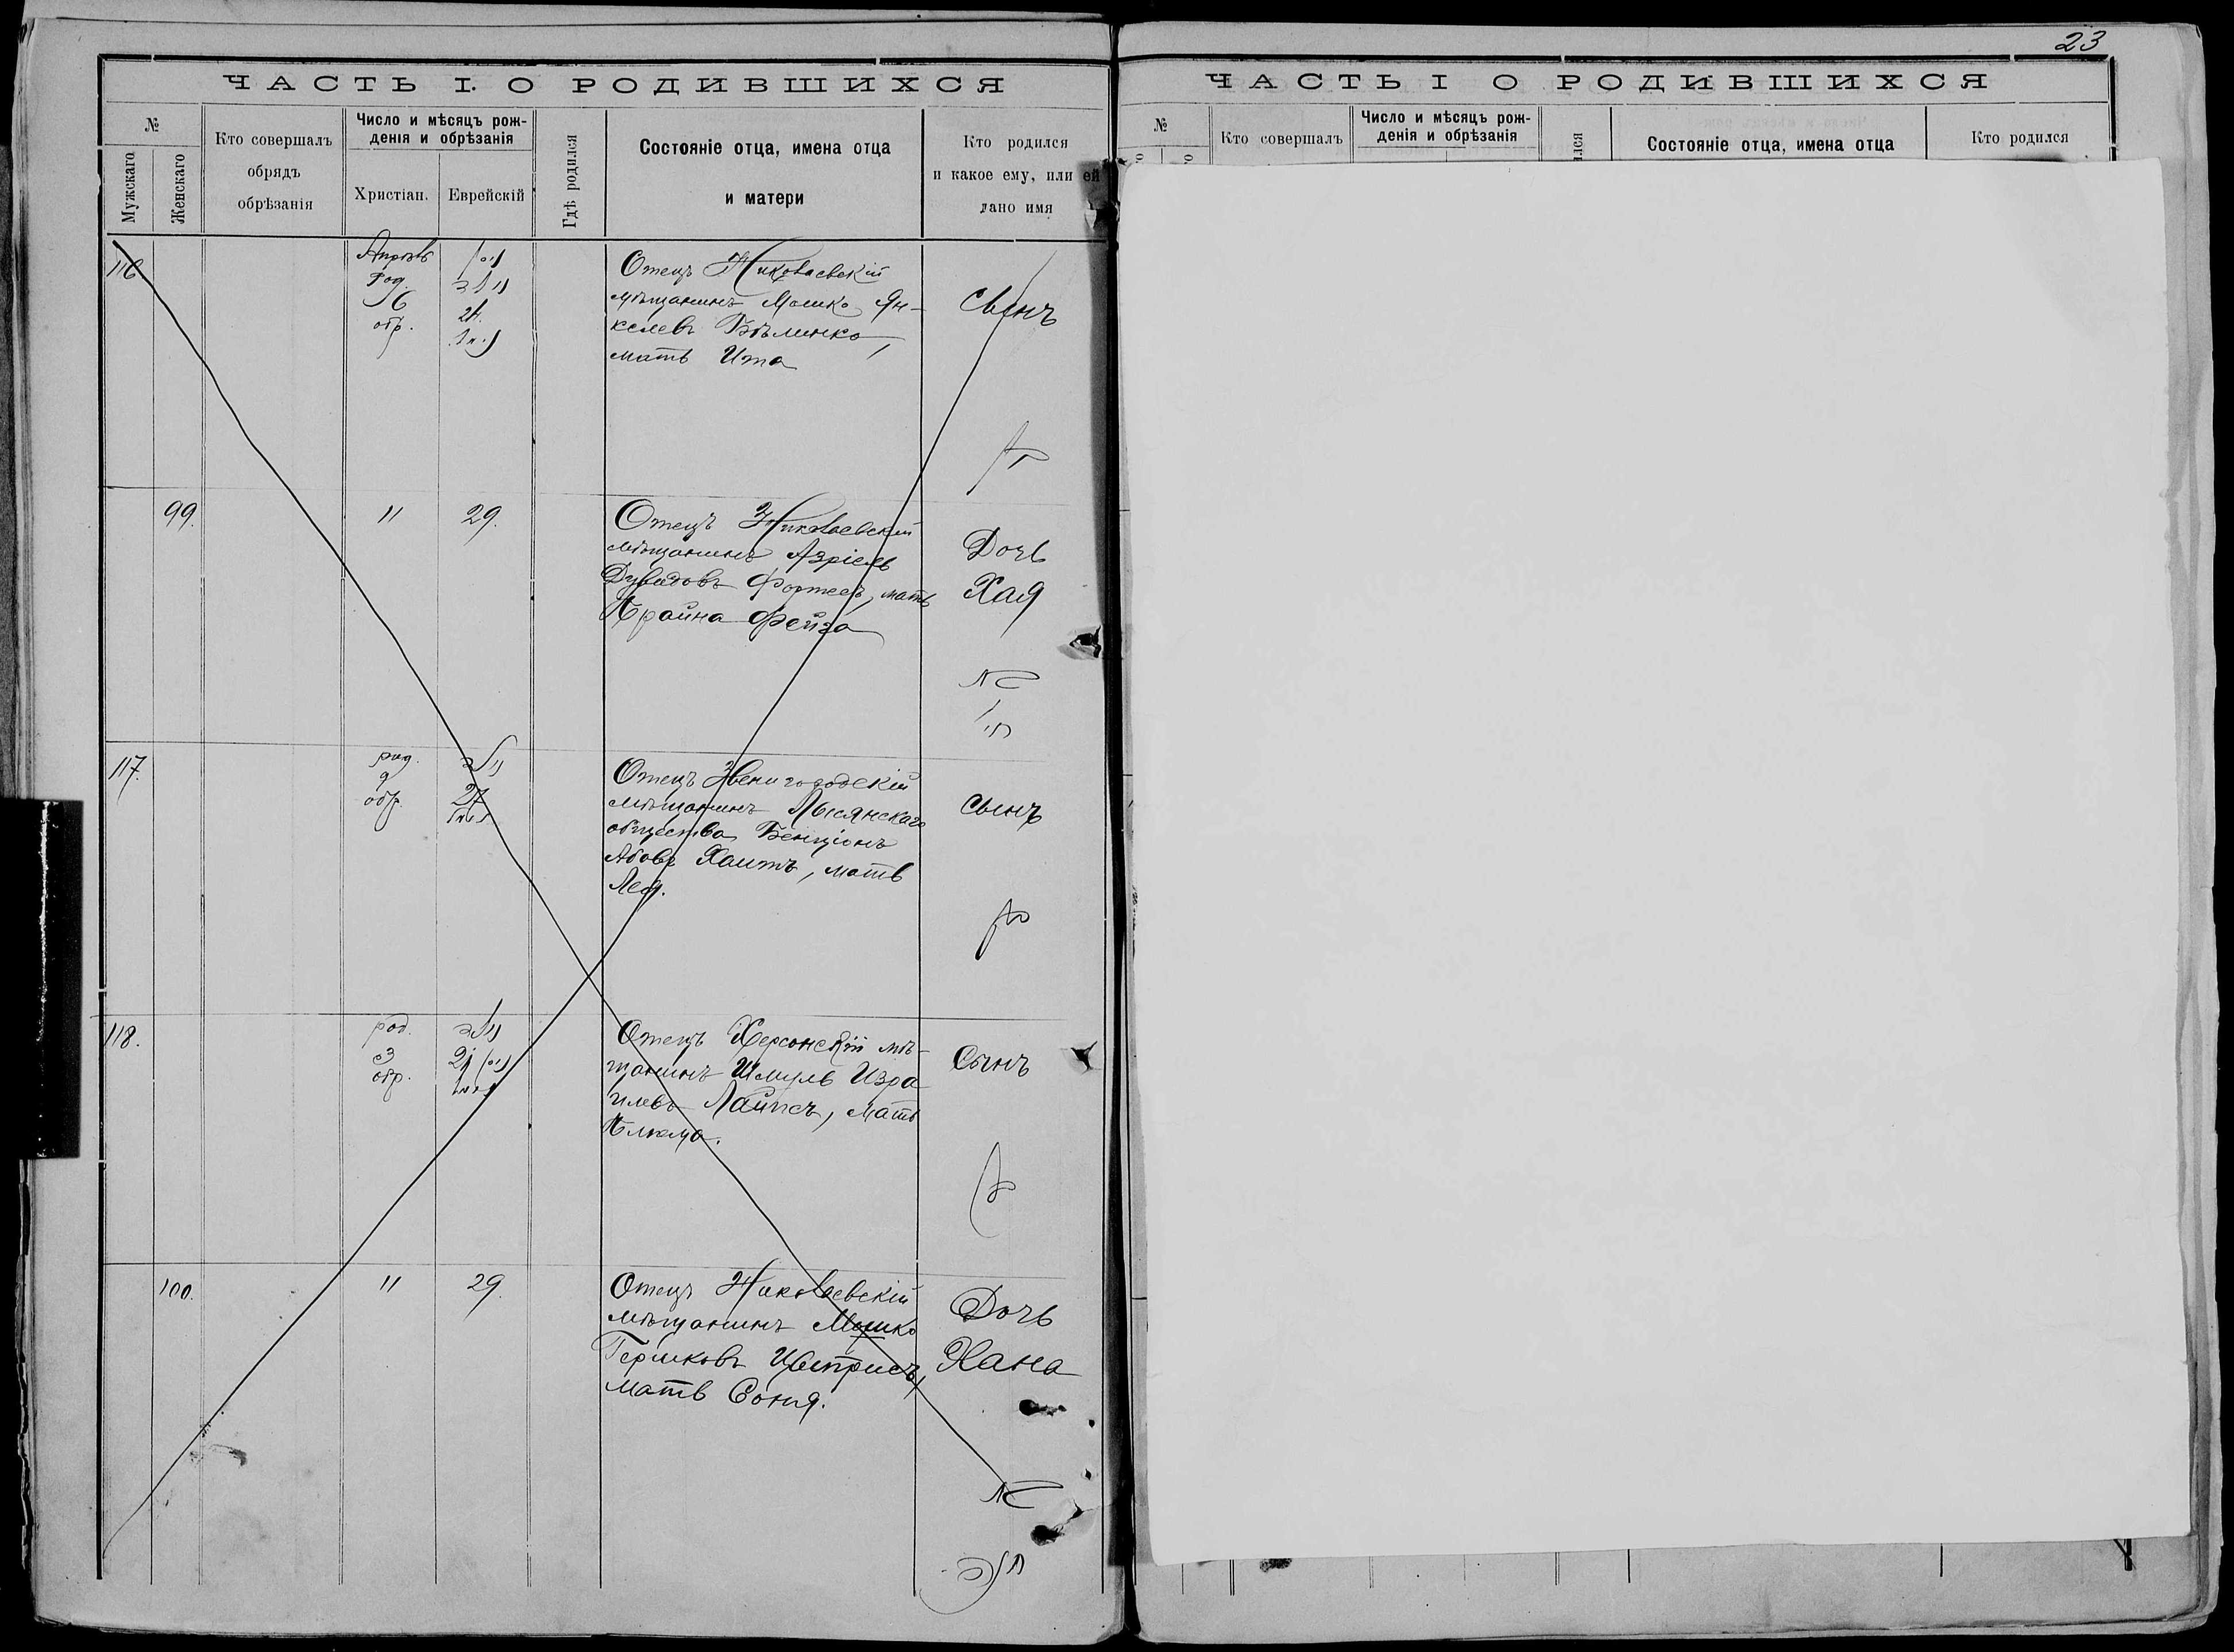 ЧАСТЬ I. О РОДИВШИХСЯ
№
Мужскаго
Женскаго
Кто совершалъ
обрядъ
обрѣзанія
Число и мѣсяцъ рож-
денія и обрѣзанія
Христіан.
Еврейскій
Гдѣ родился
Состояніе отца, имена отца
и матери
Кто родился
и какое ему, или ей
дано имя
116
Апрѣль
род.
6
обр.
24.
Отецъ Николаевскій
мѣщанинъ Мошко Ян-
келевъ Бѣлинко,
мать Ита
Сынъ
99.
11
29.
Отецъ Николаевскій
мѣщанинъ Азріель
Дувидовъ Фортесъ, мать
Брайна Фейга
Дочь
Хая
117.
род.
9
обр.
27
Отецъ Звенигородскій
мѣщанинъ Лысянскаго
общества Бенціонъ
Абовъ Хаитъ, мать
Лея.
сынъ
118.
род.
3
обр.
21
Отецъ Херсонскій мѣ-
щанинъ Шмуль Изра-
илевъ Лайпсъ, мать
Блюма.
Сынъ
100.
11
29.
Отецъ Николаевскій
мѣщанинъ Мошко
Гершковъ
мать Соня.
Дочь
Хана
23
ЧАСТЬ I О РОДИВШИХСЯ
№
Кто совершалъ
Число и мѣсяцъ рож-
денія и обрѣзанія
Состояніе отца, имена отца
Кто родился